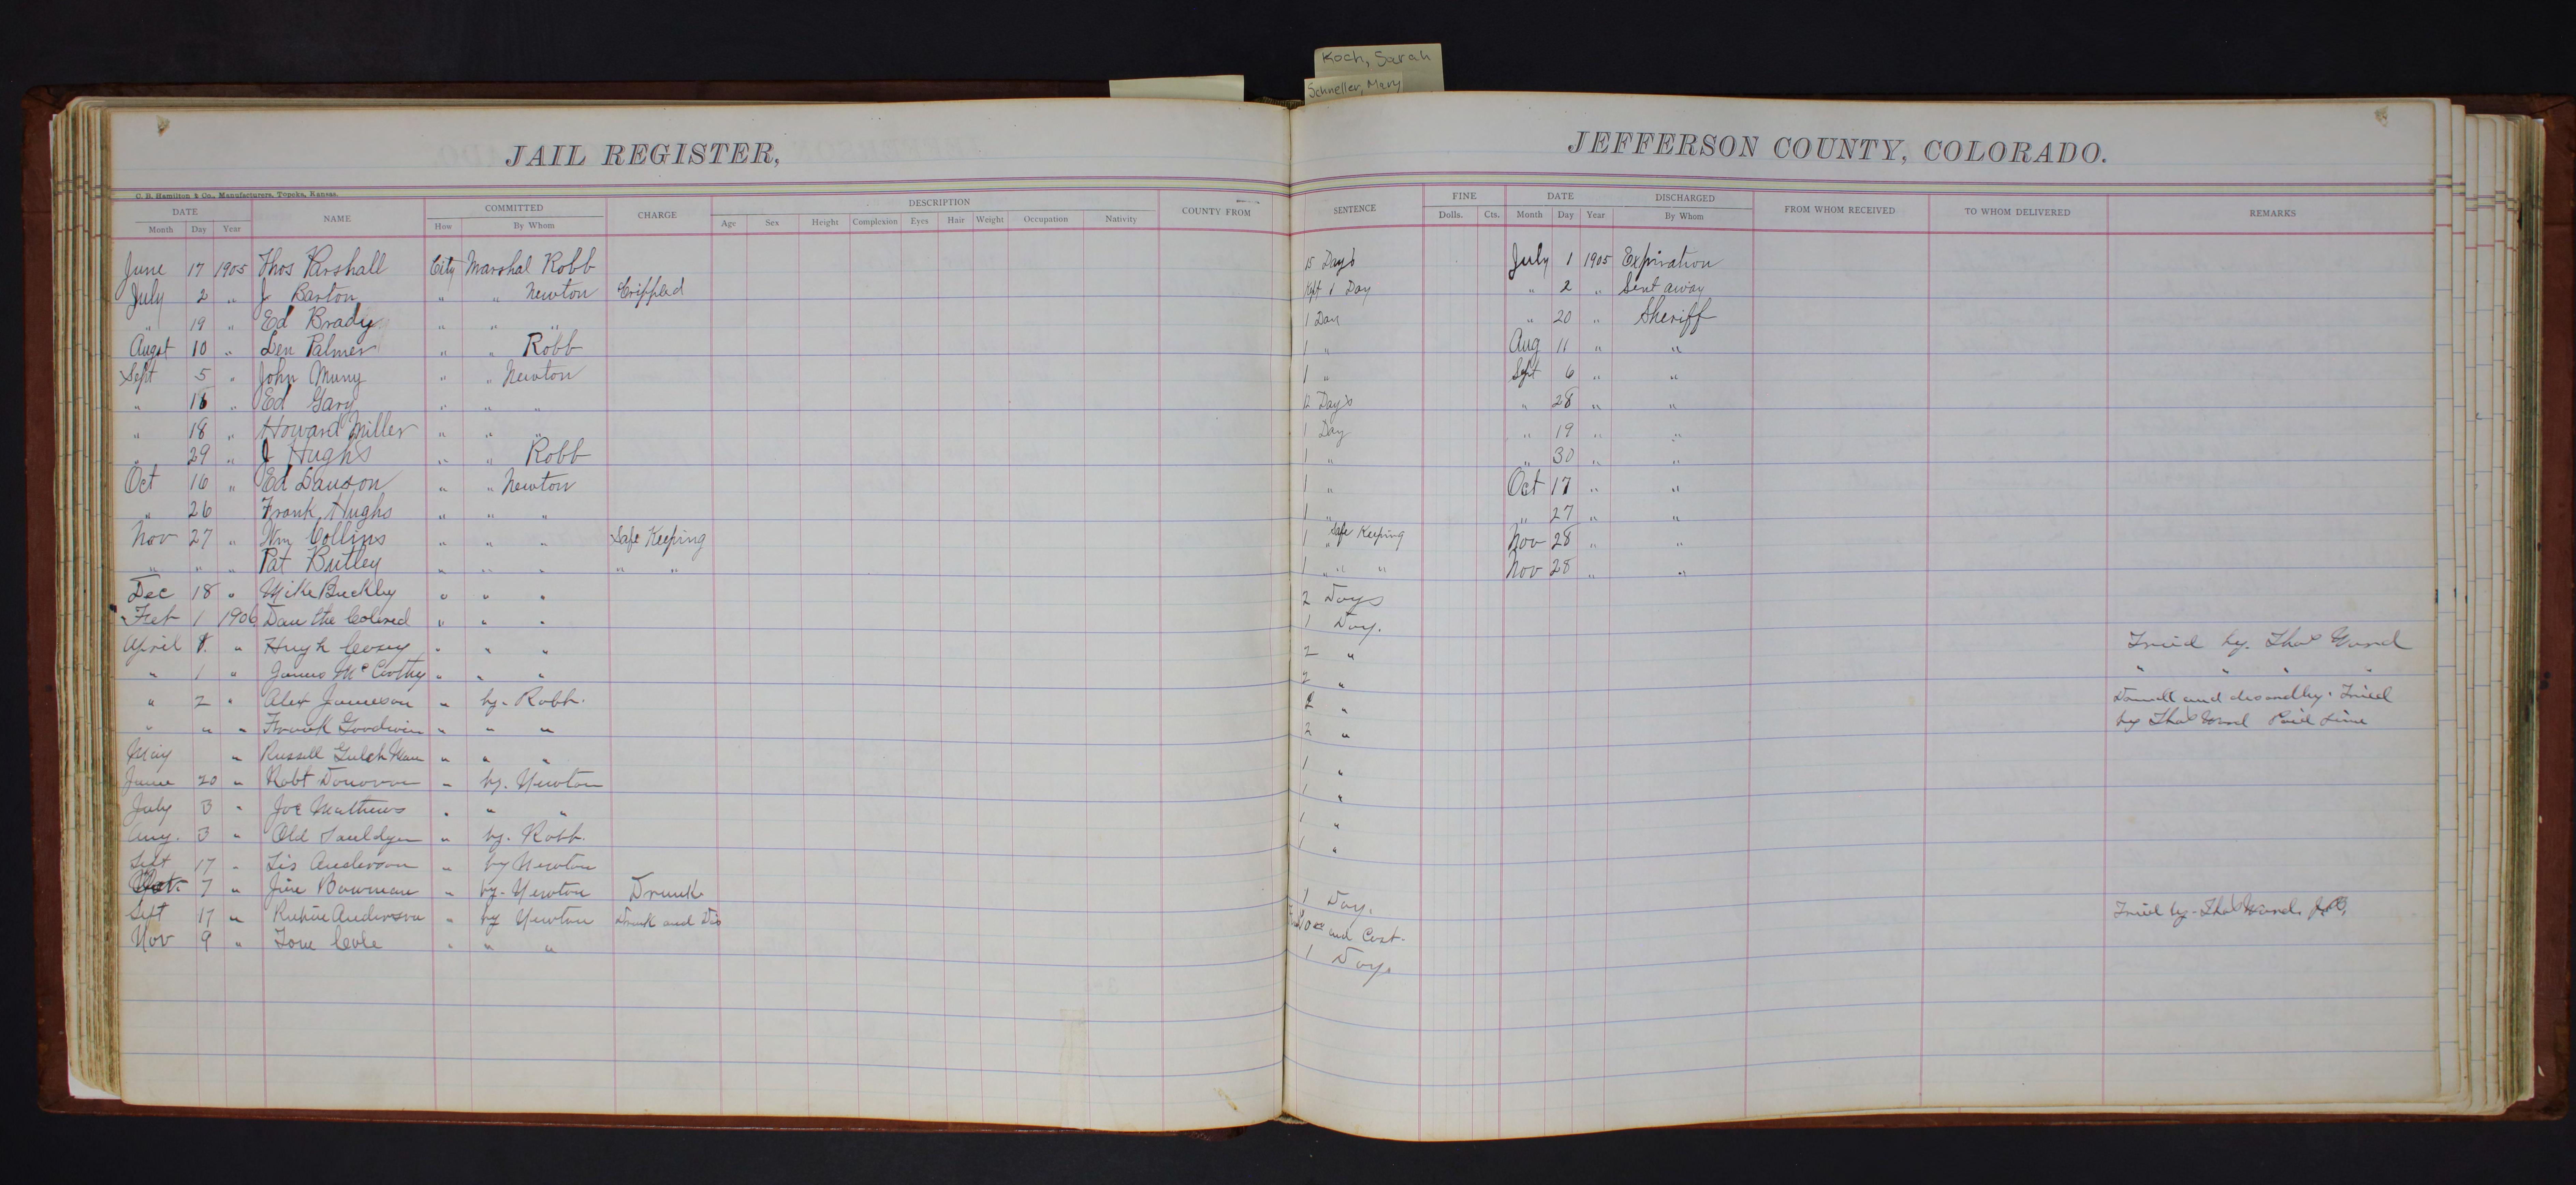 Koch, Sarah
Schneller, Mary
JAIL REGISTER,
JEFFERSON COUNTY, COLORADO.
C. B. Hamilton & Co., Manufacturers, Topeka, Kansas.
DATE NAME COMMITTED CHARGE DESCRIPTION COUNTY FROM SENTENCE FINE DATE DISCHARGED FROM WHOM RECEIVED TO WHOM DELIVERED REMARKS
Month Day Year How By Whom Age Sex Height Complexion Eyes Hair Weight Occupation Nativity Dolls. Cts. Month Day Year By Whom
June 17 1905 Thos Parshall City Marshal Robb 15 Day's July 1 1905 Expiration
July 2 " J Barton " " Newton Crippled Kept 1 Day " 2 " Sent away
" 19 " Ed Brady " " " 1 Day " 20 " Sheriff
Augst 10 " Len Palmer " " Robb 1 " Aug 11 " "
Sept 5 " John Muny " " Newton 1 " Sept 6 " "
" 16 " Ed Gary " " " 12 Day's " 28 " "
" 18 " Howard Miller " " " 1 Day " 19 " "
" 29 " J Hughs " " Robb 1 " " 30 " "
Oct 16 " Ed Dawson " " Newton 1 " Oct 17 " "
" 26 Frank Hughs " " " 1 " " 27 " "
Nov 27 " Wm Collins " " " Safe Keeping 1 " Safe Keeping Nov 28 " "
" " " Pat Butley " " " " " 1 " " " Nov 28 " "
Dec 18 " Mike Buckley " " " 2 Days
Feb 1 1906 Dan the Colored " " " 1 Day.
April 1 " Hugh Casey " " " 2 " Tried by. Thos Gard
" 1 " James McCarthy " " " 2 " " " " "
" 2 " Alex Jameson " by. Robb. 2 " Drunk and disorderly. Tried
" " " Frank Goodwin " " " 2 " by Thos Paid fine
May " Russell Gulch Man " " " 1 "
June 20 " Robt Donovan " by. Newton 1 "
July 3 " Joe Mathews " " " 1 "
Aug. 3 " Old " by. Robb. 1 "
Sept 17 " Anderson " by Newton
Oct. 7 " Jim Bowman " by. Newton Drunk 1 Day.
Sept 17 " Anderson " by Newton Drunk and Dis 10 and Cost. Tried by. Thos
Nov 9 " Tom Cole " " " 1 Day.